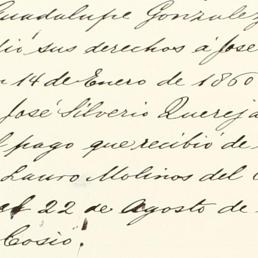 Guadalupe Gonzalez
dió sus derechos á José
14 de Enero de 1860
José Silverio Quereja
pago que recibió de
Lauro Molinos del
el 22 de Agosto de
Cosio.